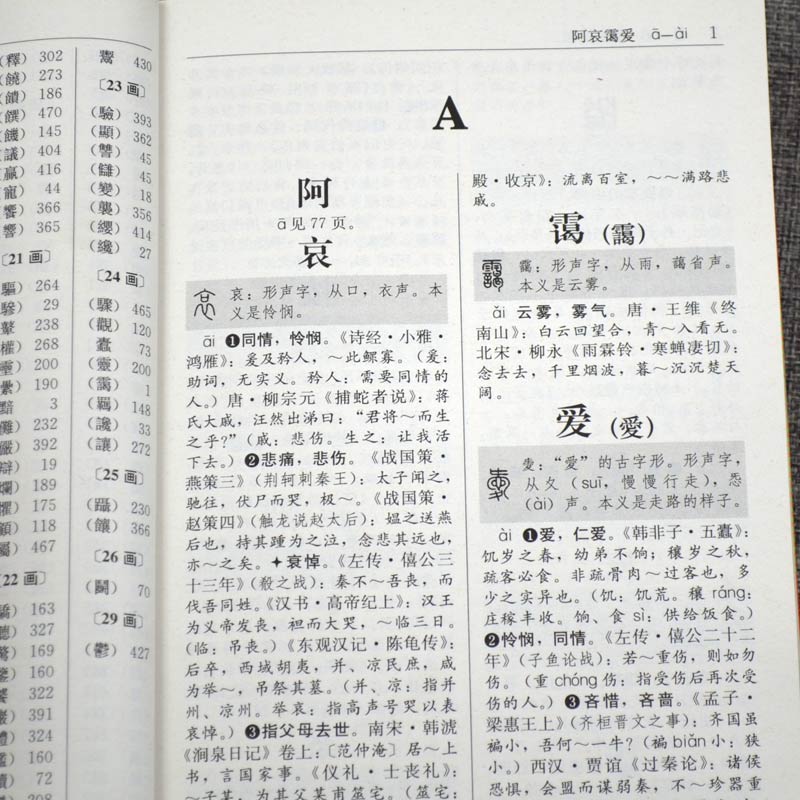 (釋) 302
(饒) 273
(饋) 186
(饌) 470
(饑) 145
(議) 404
(贏) 416
(寵) 44
(饗) 366
(響) 365
〔21 画〕
(驅) 264
(驂) 29
238
(權) 268
200
(纍) 190
黯 3
(儺) 232
(儼) 392
(辯) 19
(爛) 189
(懼) 175
(顧) 118
(屬) 467
〔22 画〕
(驕) 163
(聽) 327
(驚) 169
(鑒) 160
(饕) 322
(巖) 391
(體) 324
160
(讀) 72
205
鬻 430
〔23 画〕
(驗) 393
(顯) 362
(讐) 45
(讎) 45
(變) 18
(襲) 356
(纓) 414
(纔) 27
〔24 画〕
(驟) 465
(觀) 120
蠹 73
(靈) 200
(靄) 1
(羈) 148
(讒) 33
(讓) 272
〔25 画〕
(躡) 230
(饟) 366
〔26 画〕
(鬭) 70
〔29 画〕
(鬱) 427
阿哀霭爱 ā—ài 1
A
阿
ā见 77 页。
哀
哀：形声字，从口，衣声。本
义是怜悯。
āi ❶同情，怜悯。《诗经·小雅·
鸿雁》：爰及矜人，～此鳏寡。（爰：
助词，无实义。矜人：需要同情的
人。）唐·柳宗元《捕蛇者说》：蒋
氏大戚，汪然出涕曰：“君将～而生
之乎？”（戚：悲伤。生之：让我活
下去。）❷悲痛，悲伤。《战国策·
燕策三》（荆轲刺秦王）：太子闻之，
驰往，伏尸而哭，极～。《战国策·
赵策四》（触龙说赵太后）：媪之送燕
后也，持其踵为之泣，念悲其远也，
亦～之矣。✦哀悼。《左传·僖公三
十三年》（殽之战）：秦不～吾丧，而
伐吾同姓。《汉书·高帝纪上》：汉王
为义帝发丧，袒而大哭，～临三日。
（临：吊丧。）《东观汉记·陈龟传》：
后卒，西域胡夷，并、凉民庶，咸
为举～，吊祭其墓。（并、凉：指并
州、凉州。举哀：指高声号哭以表
哀悼。）❸指父母去世。南宋·韩淲
《涧泉日记》卷上：〔范仲淹〕居～上
书，言国家事。《仪礼·士丧礼》：
～子某，为其父某甫筮宅。（筮宅：
殿·收京》：流离百室，～～满路悲
戚。
霭（靄）
靄：形声字，从雨，藹省声。
本义是云雾。
ǎi 云雾，雾气。唐·王维《终
南山》：白云回望合，青～入看无。
北宋·柳永《雨霖铃·寒蝉凄切》：
念去去，千里烟波，暮～沉沉楚天
阔。
爱（愛）
㤅：“爱”的古字形。形声字，
从夊（suī，慢慢行走），㤅
（ài）声。本义是走路的样子。
ài ❶爱，仁爱。《韩非子·五蠹》：
饥岁之春，幼弟不饷；穰岁之秋，
疏客必食。非疏骨肉～过客也，多
少之实异也。（饥：饥荒。穰 ráng：
庄稼丰收。饷、食 sì：供给饭食。）
❷怜悯，同情。《左传·僖公二十二
年》（子鱼论战）：若～重伤，则如勿
伤。（重 chóng 伤：指受伤后再次受
伤的人。）❸吝惜，吝啬。《孟子·
梁惠王上》（齐桓晋文之事）：齐国虽
褊小，吾何～一牛？（褊 biǎn 小：狭
小。）西汉·贾谊《过秦论》：诸侯
恐惧，会盟而谋弱秦，不～珍器重